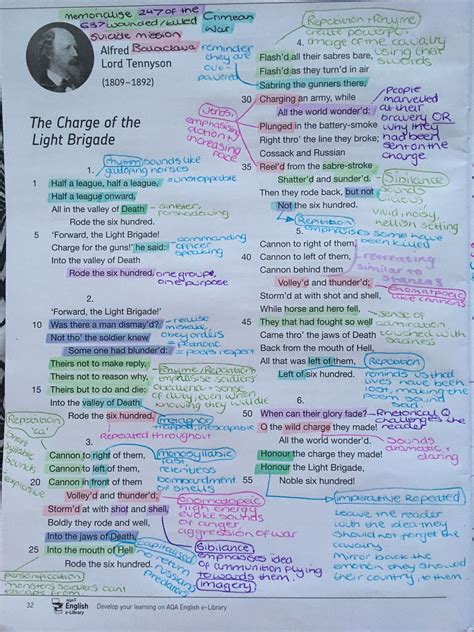 memorialise 247 of the
637 wounded/killed
suicide mission
Crimean
War
Balaclava
Alfred
Lord Tennyson
(1809–1892)
reminder
they are
out-
powered
The Charge of the
Light Brigade
1.
rhythm sounds like
galloping horses
1 Half a league, half a league, =unstoppable
Half a league onward,
All in the valley of Death = sinister,
foreshadowing
5 'Forward, the Light Brigade!
Charge for the guns!' he said:
commanding
officer
speaking
Into the valley of Death
Rode the six hundred. one group,
one purpose
2.
'Forward, the Light Brigade!'
10 Was there a man dismay'd? = realise
mistake
Not tho' the soldier knew
obey orders
Some one had blunder'd:
Theirs not to make reply,
Theirs not to reason why,
15 Theirs but to do and die:
Into the valley of Death
Rode the six hundred.
Rhyme/Repetition
emphasise soldiers
metaphor
trapped, inescapable
repeated throughout
3.
Cannon to right of them,
Cannon to left of them,
20 Cannon in front of them
Volley'd and thunder'd;
Storm'd at with shot and shell,
Boldly they rode and well,
Into the jaws of Death,
25 Into the mouth of Hell
Rode the six hundred.
monosyllabic
fast
relentless
bombardment
of shells
Onomatopoeic
high energy
evoke sounds
of anger,
aggression of war
Sibilance
emphasises idea
of ammunition flying
towards them.
imagery
capitalised
no return
Russians
predators
personification
escape from
Repetition + Rhyme
create powerful
image of the cavalry
using their
swords
4.
Flash'd all their sabres bare,
Flash'd as they turn'd in air
Sabring the gunners there,
30 Charging an army, while
All the world wonder'd:
Plunged in the battery-smoke
Right thro' the line they broke;
Cossack and Russian
35 Reel'd from the sabre-stroke
Shatter'd and sunder'd.
Then they rode back, but not
Not the six hundred.
verbs
emphasise
action +
increasing
pace
People
marvelled
at their
bravery OR
why they
had been
sent on the
charge
Sibilance
sounds
vicious
vivid, noisy,
Repetition
emphasises some have
been killed
5.
Cannon to right of them,
40 Cannon to left of them,
Cannon behind them
Volley'd and thunder'd;
Storm'd at with shot and shell,
While horse and hero fell,
45 They that had fought so well
Came thro' the jaws of Death
Back from the mouth of Hell,
All that was left of them,
Left of six hundred.
retreating
similar to
stanza 3
Onomatopoeic
like cannons
= sense of
admiration
towards with
sadness
Repetition
reminds us that
lives have been
lost, making the
poem sound
sad
6.
50 When can their glory fade? = Rhetorical Q
challenges the
reader
O the wild charge they made!
All the world wonder'd.
Honour the charge they made!
Honour the Light Brigade,
55 Noble six hundred!
Sounds
dramatic +
daring
imperative Repeated
Leave the reader
with the idea they
should not forget the
cavalry
Mirror back the
emotion they showed
their country, to them
32
AQA
English
e-Library
Develop your learning on AQA English e-Library